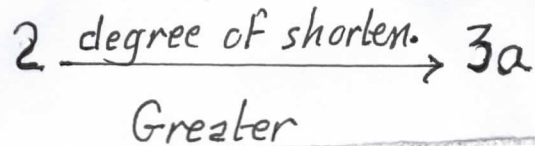 2 degree of shorten. → 3a
Greater